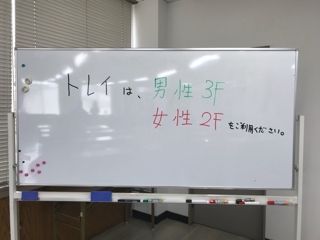 トレイは、男性3F
女性2Fをご利用ください。